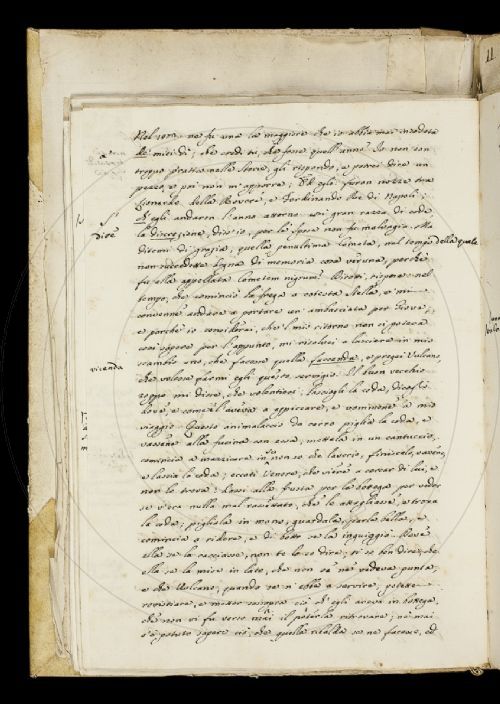 Nel 1477 ne fu una la maggiore che io abbia mai veduta
a' miei dì; che credi tu, che fosse quell'anno? Io non son
troppo pratico nelle storie, gli rispondo, e potrei dire un
pezzo, e poi non m'apporre; Eh egli furon nozze tra
Leonardo della Rovere, e Ferdinando Re di Napoli;
Ch'egli andaron l'anno attorno con gran razza di coda
la discrezione, dich'io, per la sposa non fu malvagia. Ma
ditemi di grazia, quella penultima cometa, nel tempo della quale
non succedette degna di memoria cosa veruna, perchè
fu ella appellata Cometem nigrum? Dirotti, rispose: nel
tempo, che cominciò la frega a codesta stella, e' mi
convenne andare a portare un ambasciata per Giove,
e perchè io considerai, che 'l mio ritorno non si poteva
così appore per l'appunto, mi risolvei a lasciare in mio
scambio uno, che facesse quella faccenda, e pregai Vulcano,
che volesse farmi egli questo servigio. Il buon vecchio
zoppo mi disse, che volentieri; lasciogli la coda, dicogli
dove, e come l'aveva a appiccare, e vommene a mio
viaggio. Questo animalaccio da corso piglia la coda, e
vassene alla fucina con essa, mettela in un cantuccio,
comincia a marziare in non so che lavorio, finiscelo, vassene,
e lascia la coda; eccoti Venere, che viene a cercar di lui, e
non lo trova: dassi alla frusta per la bottega per veder
se v'era nulla mal rassettato, che l'attagliasse, e trova
la coda; pigliala in mano, guardala, parle bella, e
comincia a ridere, e di botto se la inguiggia. Dove
ella se la cacciasse, non te lo so dire; ti so ben dire, che
ella se la mise in lato, che non se ne vedeva punta,
e che Vulcano, quando se n'ebbe a servire, potette
rovistiare, e metter sozzopra ciò ch'egli aveva in bottega,
che non vi fu verso mai il poterla ritrovare; nè mai
s'è potuto sapere ciò, che quella ribalda se ne facesse, ed
a'
dice
vicenda